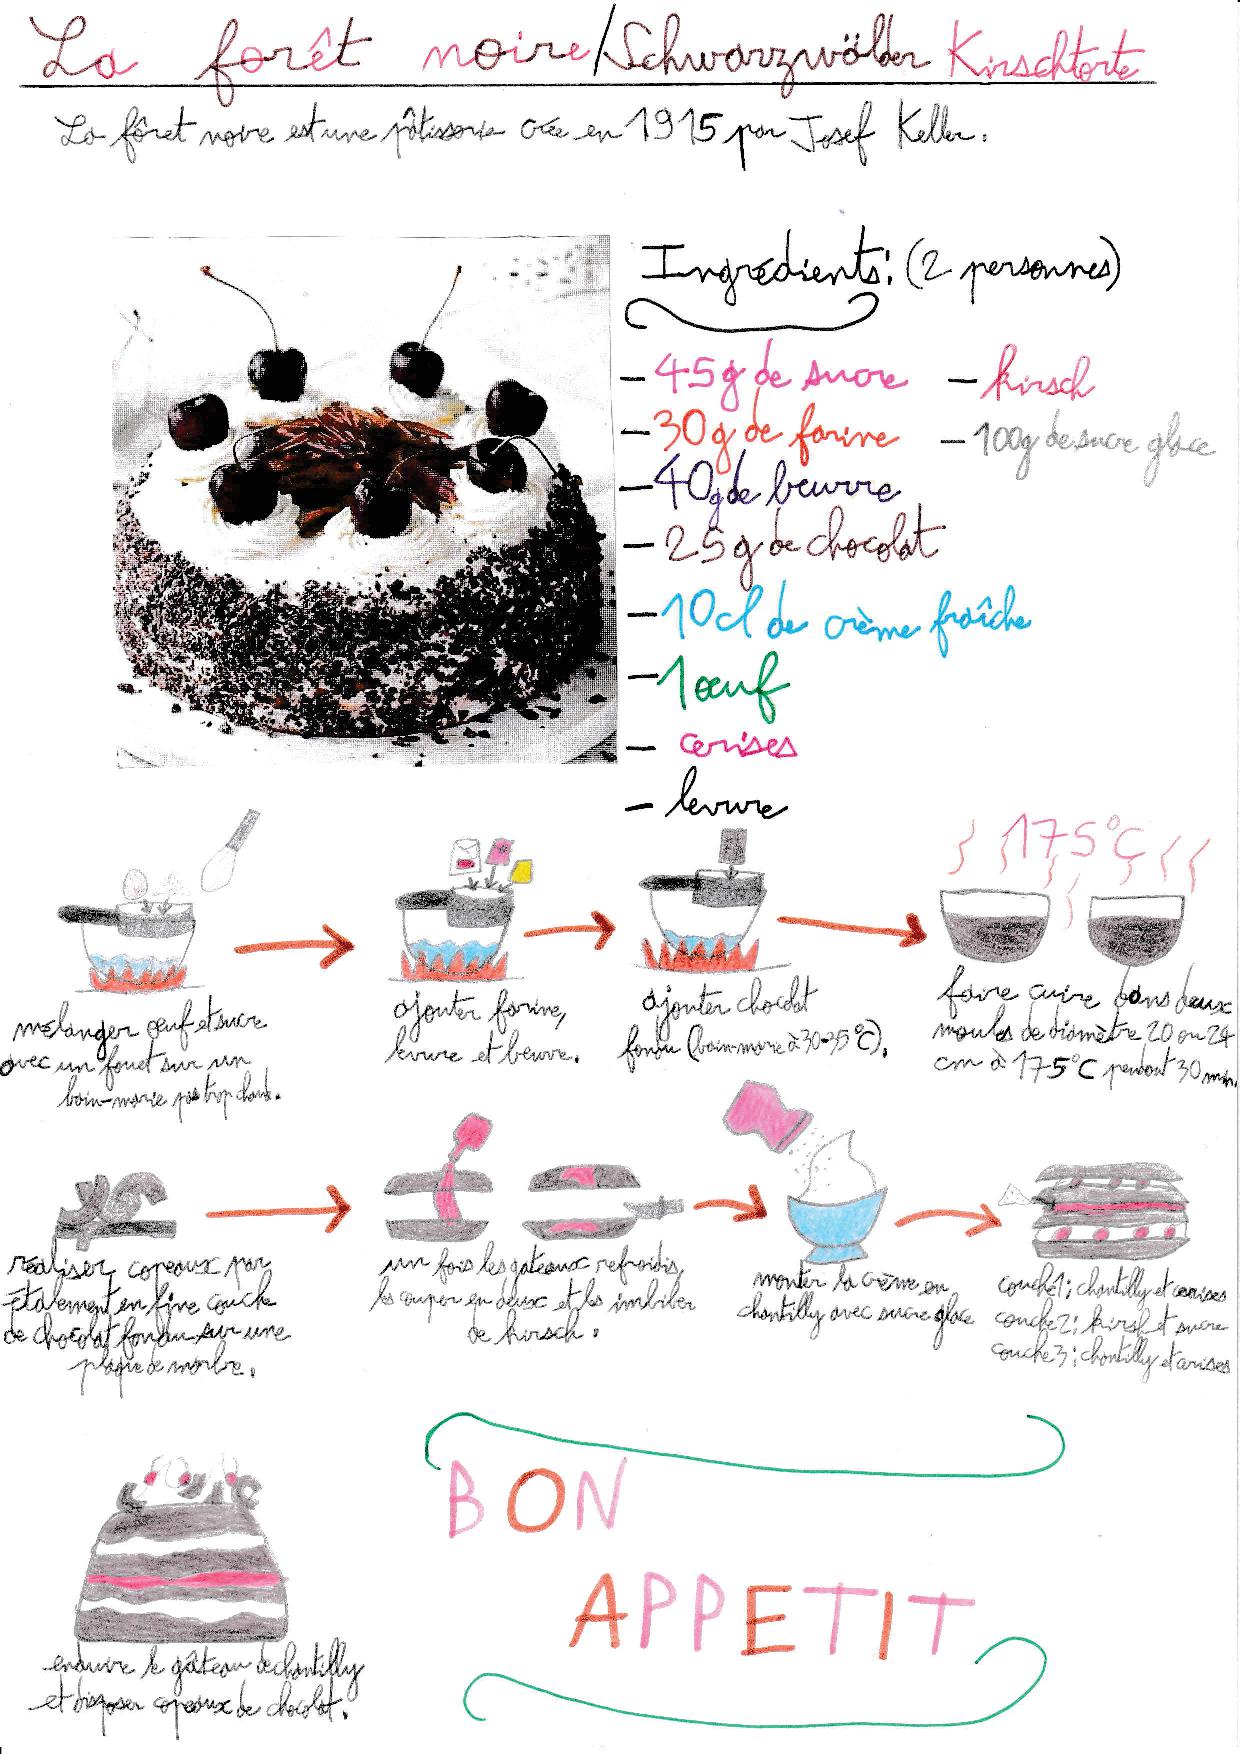 La forêt noire/Schwarzwälder Kirschtorte
La fôret noire est une pâtisserie crée en 1915 par Josef Keller.
Ingrédients: (2 personnes)
- 45g de sucre
- 30g de farine
- 40g de beurre
- 25g de chocolat
- 10cl de crème fraîche
- 1 œuf
- cerises
- levure
- kirsch
- 100g de sucre glace
175°C
mélanger œuf et sucre
avec un fouet sur un
bain-marie pas trop chaud.
ajouter farine,
levure et beurre.
ajouter chocolat
fondu (bain-marie à 30-35°C).
faire cuire dans deux
moules de diamètre 20 ou 24
cm à 175°C pendant 30 min.
réaliser copeaux par
étalement en fine couche
de chocolat fondu sur une
plaque de marbre.
un fois les gateaux refroidis,
les couper en deux et les imbiber
de kirsch.
monter la crème en
chantilly avec sucre glace
couche1: chantilly et cerises
couche2: kirsh et sucre
couche3: chantilly et cerises
enduire le gâteau de chantilly
et disposer copeaux de chocolat.
BON
APPETIT